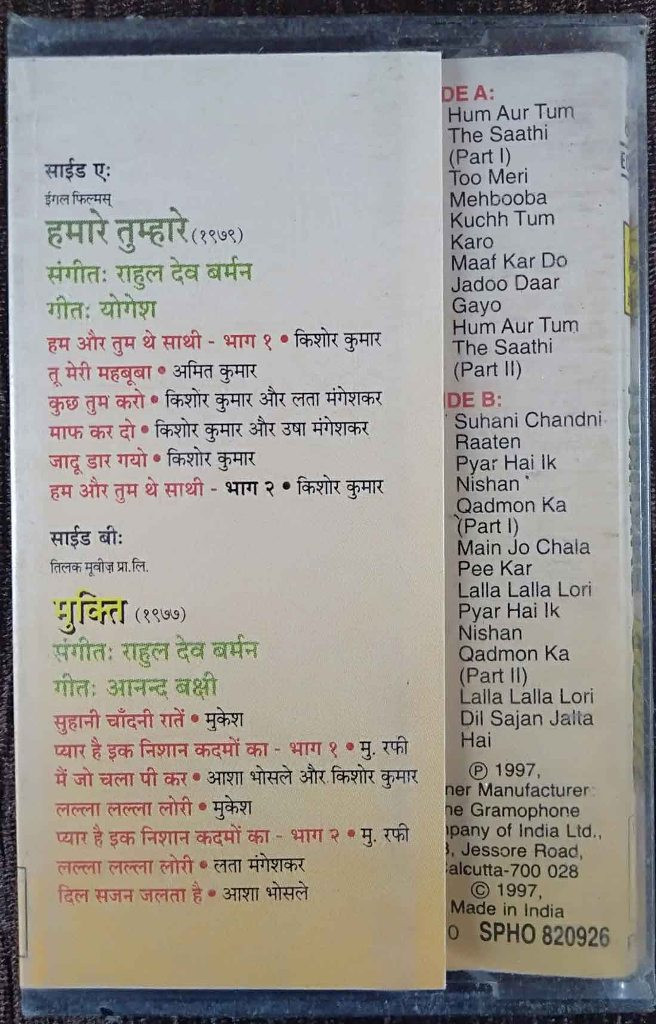 साईड ए:
ईगल फिल्मस्
हमारे तुम्हारे (१९७९)
संगीत: राहुल देव बर्मन
गीत: योगेश
हम और तुम थे साथी - भाग १ • किशोर कुमार
तू मेरी महबूबा • अमित कुमार
कुछ तुम करो • किशोर कुमार और लता मंगेशकर
माफ कर दो • किशोर कुमार और उषा मंगेशकर
जादू डार गयो • किशोर कुमार
हम और तुम थे साथी - भाग २ • किशोर कुमार
साईड बी:
तिलक मूवीज़ प्रा.लि.
मुक्ति (१९७७)
संगीत: राहुल देव बर्मन
गीत: आनन्द बक्षी
सुहानी चाँदनी रातें • मुकेश
प्यार है इक निशान कदमों का - भाग १ • मु. रफी
मैं जो चला पी कर • आशा भोसले और किशोर कुमार
लल्ला लल्ला लोरी • मुकेश
प्यार है इक निशान कदमों का - भाग २ • मु. रफी
लल्ला लल्ला लोरी • लता मंगेशकर
दिल सजन जलता है • आशा भोसले
DE A:
Hum Aur Tum
The Saathi
(Part I)
Too Meri
Mehbooba
Kuchh Tum
Karo
Maaf Kar Do
Jadoo Daar
Gayo
Hum Aur Tum
The Saathi
(Part II)
IDE B:
Suhani Chandni
Raaten
Pyar Hai Ik
Nishan
Qadmon Ka
(Part I)
Main Jo Chala
Pee Kar
Lalla Lalla Lori
Pyar Hai Ik
Nishan
Qadmon Ka
(Part II)
Lalla Lalla Lori
Dil Sajan Jalta
Hai
Ⓟ 1997,
ner Manufacturer:
ne Gramophone
npany of India Ltd.,
3, Jessore Road,
alcutta-700 028
© 1997,
Made in India
O SPHO 820926